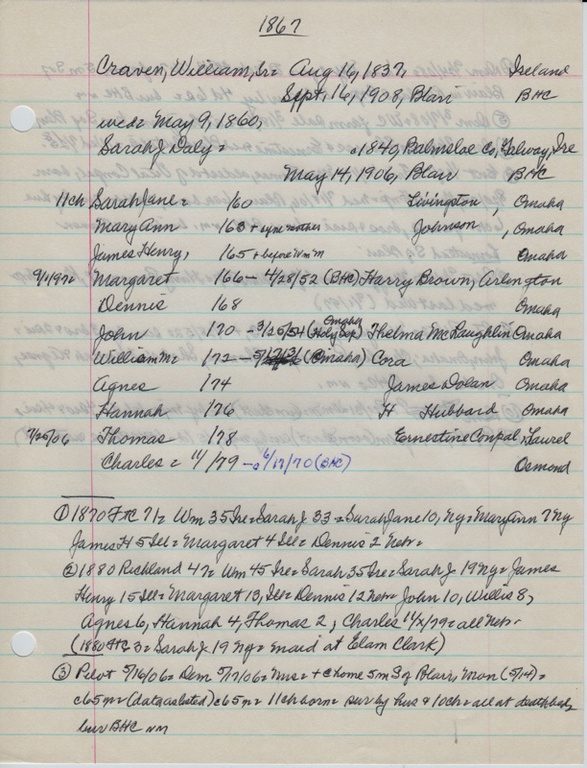 1867
Craven, William, Sr= Aug 16, 1837, Ireland
Sept, 16, 1908, Blair BHC
wed= May 9, 1860,
Sarah J Daly = c1840, Balmaloe Co, Galway, Ire
May 14, 1906, Blair BHC
11ch Sarah Jane = 160 Livingston, Omaha
Mary Ann 163 + Johnson, Omaha
James Henry, 165 + before Wm M Omaha
9/1/92 Margaret 166 - 4/28/52 (BHC) Harry Brown, Arlington
Dennis 168 Omaha
John 170 - 3/25/54 (Holy Sep) Omaha Thelma McLaughlin Omaha
William M= 172 - (Omaha) Cora Omaha
Agnes 174 James Dolan Omaha
Hannah 176 H Hubbard Omaha
7/25/06 Thomas 178 Ernestine Laurel
Charles = 11/79 - 6/17/70 (BHC) Osmond
① 1870 FtC 71= Wm 35 Ire= Sarah J 33 = Sarah Jane 10, Ny= Mary Ann 7 Ny
James H 5 Ill= Margaret 4 Ill= Dennis 2 Neb=
② 1880 Richland 47= Wm 45 Ire= Sarah 35 Ire= Sarah J. 19 Ny= James
Henry 15 Ill= Margaret 13, Ill= Dennis 12 Neb= John 10, Willis 8,
Agnes 6, Hannah 4, Thomas 2, Charles 11/X/79 = all Neb-
(1880 FtC 3= Sarah J. 19 Ny= maid at Elam Clark)
③ Pilot 5/16/06= Dem 5/17/06= Mrs= + c home 5m S of Blair, Mon (5/14)=
c65m= (data aclisted) c65m= 11ch born= sur by hus & 10ch= all at deathbed=
bur BHC nm